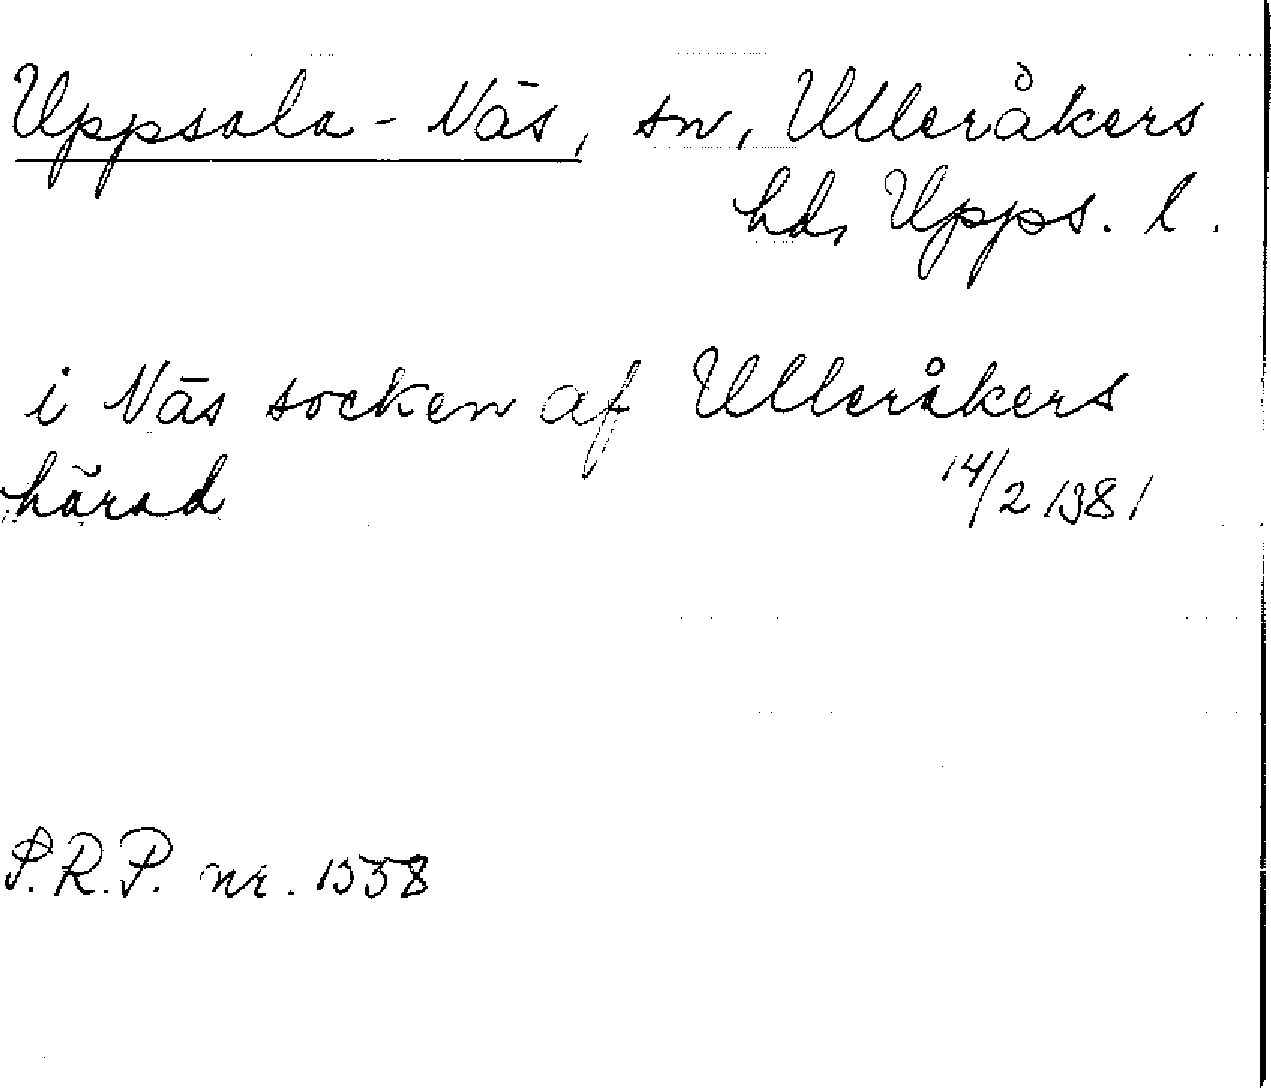 Uppsala-Näs, sn, Ulleråkers
hd, Upps. l.
i Näs socken af Ulleråkers
härad 14/2 1381
S.R.P. nr. 1558